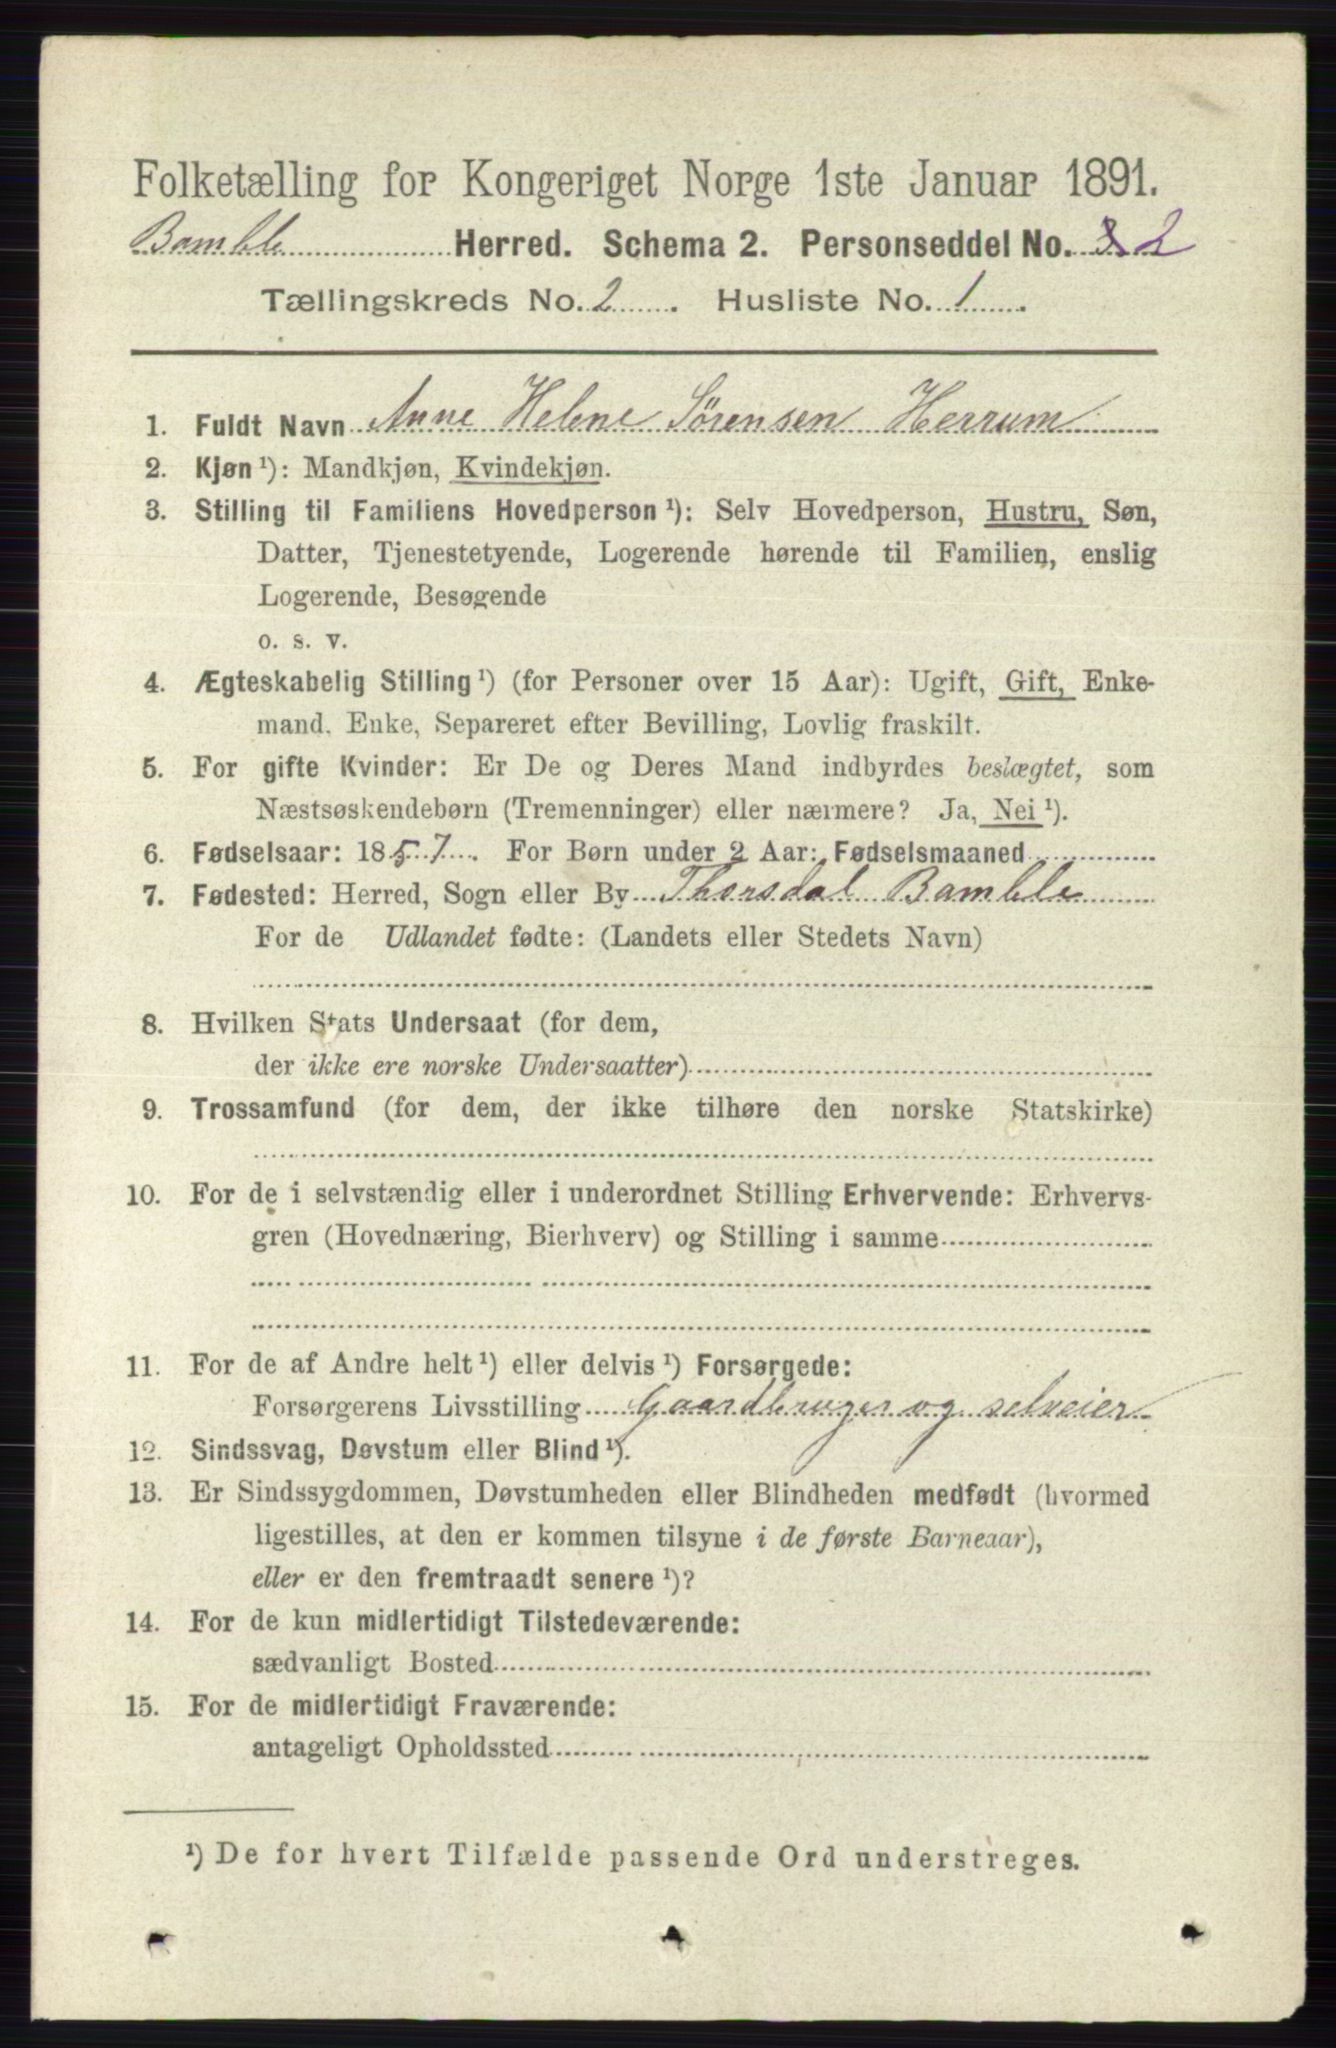 Folketælling for Kongeriget Norge 1ste Januar 1891.
Bamble Herred. Schema 2. Personseddel No. 2
Tællingskreds No. 2. Husliste No. 1.
1. Fuldt Navn Anne Helene Sørensen Herrum
2. Kjøn ¹): Mandkjøn, Kvindekjøn.
3. Stilling til Familiens Hovedperson ¹): Selv Hovedperson, Hustru, Søn,
Datter, Tjenestetyende, Logerende hørende til Familien, enslig
Logerende, Besøgende
o. s. v.
4. Ægteskabelig Stilling ¹) (for Personer over 15 Aar): Ugift, Gift, Enke-
mand, Enke, Separeret efter Bevilling, Lovlig fraskilt.
5. For gifte Kvinder: Er De og Deres Mand indbyrdes beslægtet, som
Næstsøskendebørn (Tremenninger) eller nærmere? Ja, Nei ¹).
6. Fødselsaar: 1857. For Børn under 2 Aar: Fødselsmaaned
7. Fødested: Herred, Sogn eller By Thorsdal Bamble
For de Udlandet fødte: (Landets eller Stedets Navn)
8. Hvilken Stats Undersaat (for dem,
der ikke ere norske Undersaatter)
9. Trossamfund (for dem, der ikke tilhøre den norske Statskirke)
10. For de i selvstændig eller i underordnet Stilling Erhvervende: Erhvervs-
gren (Hovednæring, Bierhverv) og Stilling i samme
11. For de af Andre helt ¹) eller delvis ¹) Forsørgede:
Forsørgerens Livsstilling Gaardbruger og selveier
12. Sindssvag, Døvstum eller Blind ¹).
13. Er Sindssygdommen, Døvstumheden eller Blindheden medfødt (hvormed
ligestilles, at den er kommen tilsyne i de første Barneaar),
eller er den fremtraadt senere ¹)?
14. For de kun midlertidigt Tilstedeværende:
sædvanligt Bosted
15. For de midlertidigt Fraværende:
antageligt Opholdssted
¹) De for hvert Tilfælde passende Ord understreges.